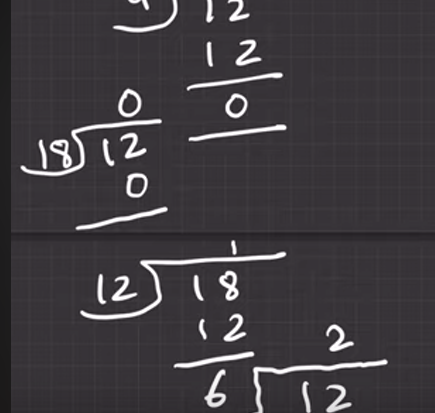 4 ) 12
12
0
0
18 ) 12
0
1
12 ) 18
12
2
6 ) 12